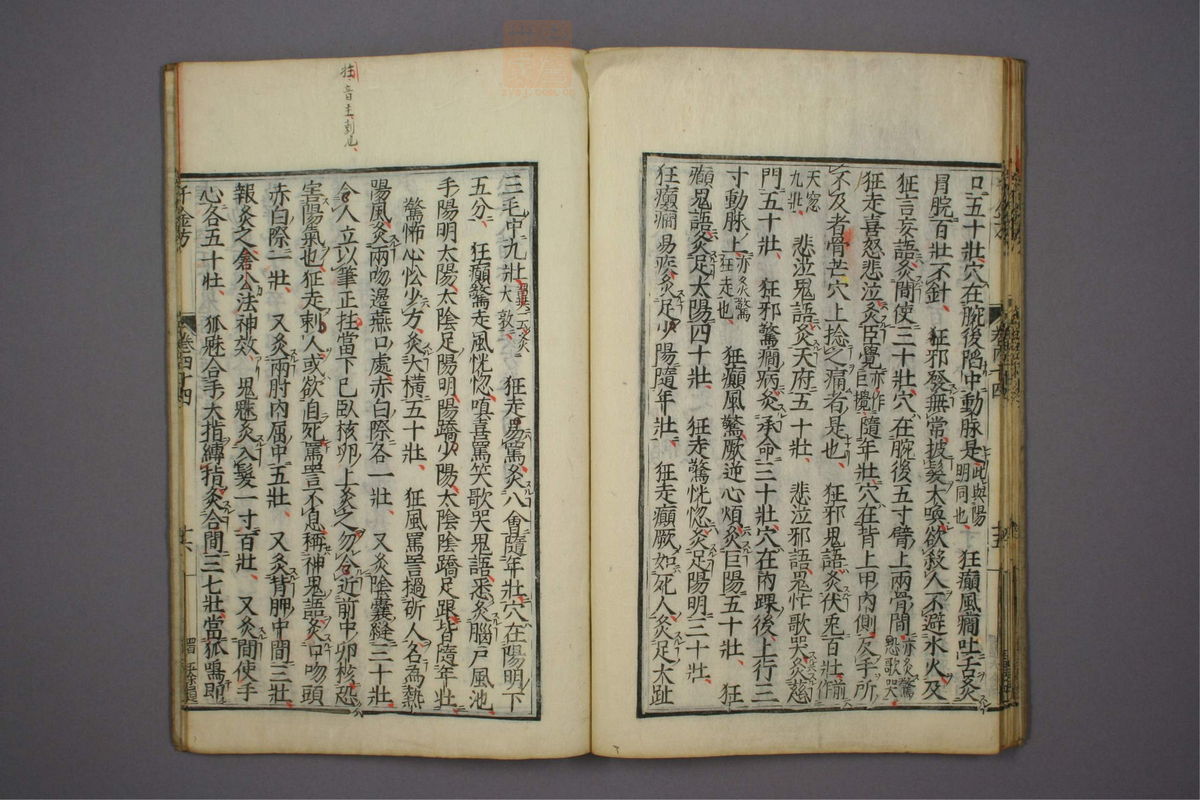 口五十壯穴在腕後陷中動脉是此與陽明同也 狂癲風癎吐舌灸
胃脘百壯不針 狂邪發無常披髮大喚欲殺人不避水火及
狂言妄語灸間使三十壯穴在腕後五寸臂上兩骨間亦灸驚恐歌哭
狂走喜怒悲泣灸臣覺亦作巨攪隨年壯穴在背上甲内側反手所
不及者骨芒穴上捻之痛者是也 狂邪鬼語灸伏兎百壯前作
天窓九壯 悲泣鬼語灸天府五十壯 悲泣邪語鬼忙歌哭灸慈
門五十壯 狂邪驚癎病灸承命三十壯穴在内踝後上行三
寸動脉上亦灸驚狂走也 狂癲風驚厥逆心煩灸巨陽五十壯 狂
癲鬼語灸足太陽四十壯 狂走驚恍惚灸足陽明三十壯
狂癲癎易疾灸足少陽隨年壯 狂走癲厥如死人灸足大趾
三毛中九壯翼云灸大敦 狂走易罵灸八會隨年壯穴在陽明下
五分 狂癲驚走風恍惚嗔喜罵笑歌哭鬼語悉灸腦戸風池
手陽明太陽太陰足陽明陽蹻少陽太陰陰蹻足跟皆隨年壯
驚怖心忪少力灸大横五十壯 狂風罵詈撾斫人名爲熱
陽風灸兩吻邊燕口處赤白際各一壯 又灸陰囊縫三十壯
令人立以筆正拄當下已臥核卵上灸之勿令近前中卵核恐
害陽氣也狂走刺人或欲自死罵詈不息稱神鬼語灸口吻頭
赤白際一壯 又灸兩肘内屈中五壯 又灸背胛中間三壯
報灸之倉公法神效 鬼魅灸入髮一寸百壯 又灸間使手
心各五十壯 狐魅合手大指縛指灸合間三七壯當狐鳴即
千金方 卷四十四 十六
拄音主刺也